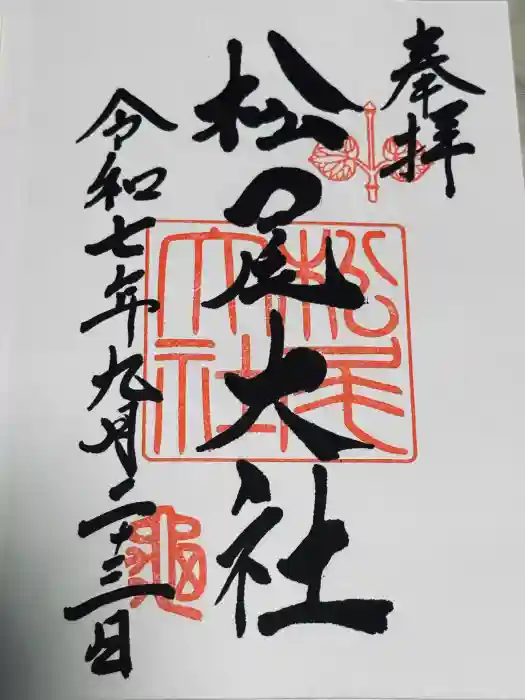 奉拝
松尾大社
松尾大社
令和七年九月二十三日
亀